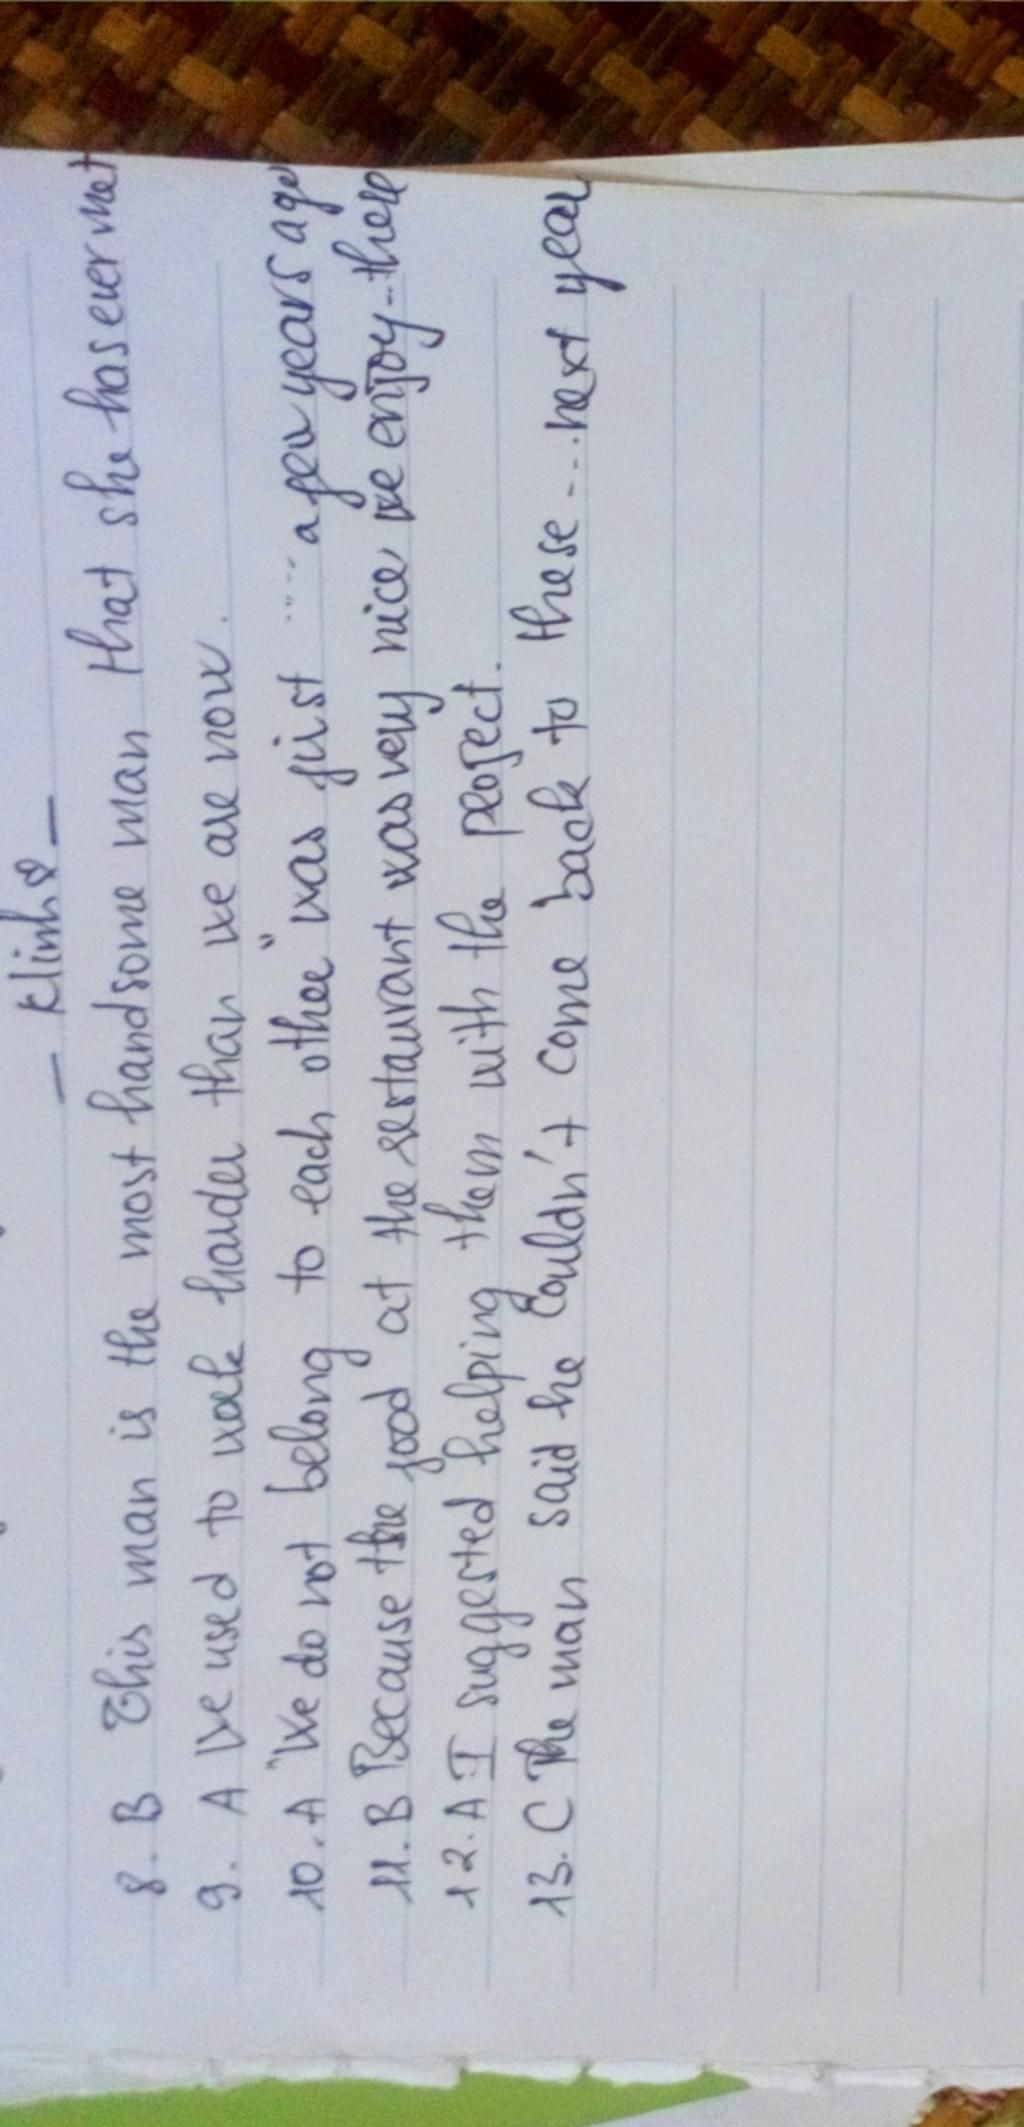 - Klinh -
8. B This man is the most handsome man that she has ever met
9. A We used to work harder than we are now.
10. A "We do not belong to each other" was first ..... a few years ago
11. B Because the food at the restaurant was very nice, we enjoy - there
12. A I suggested helping them with the project.
13. C The man said he couldn't come back to these ... next year